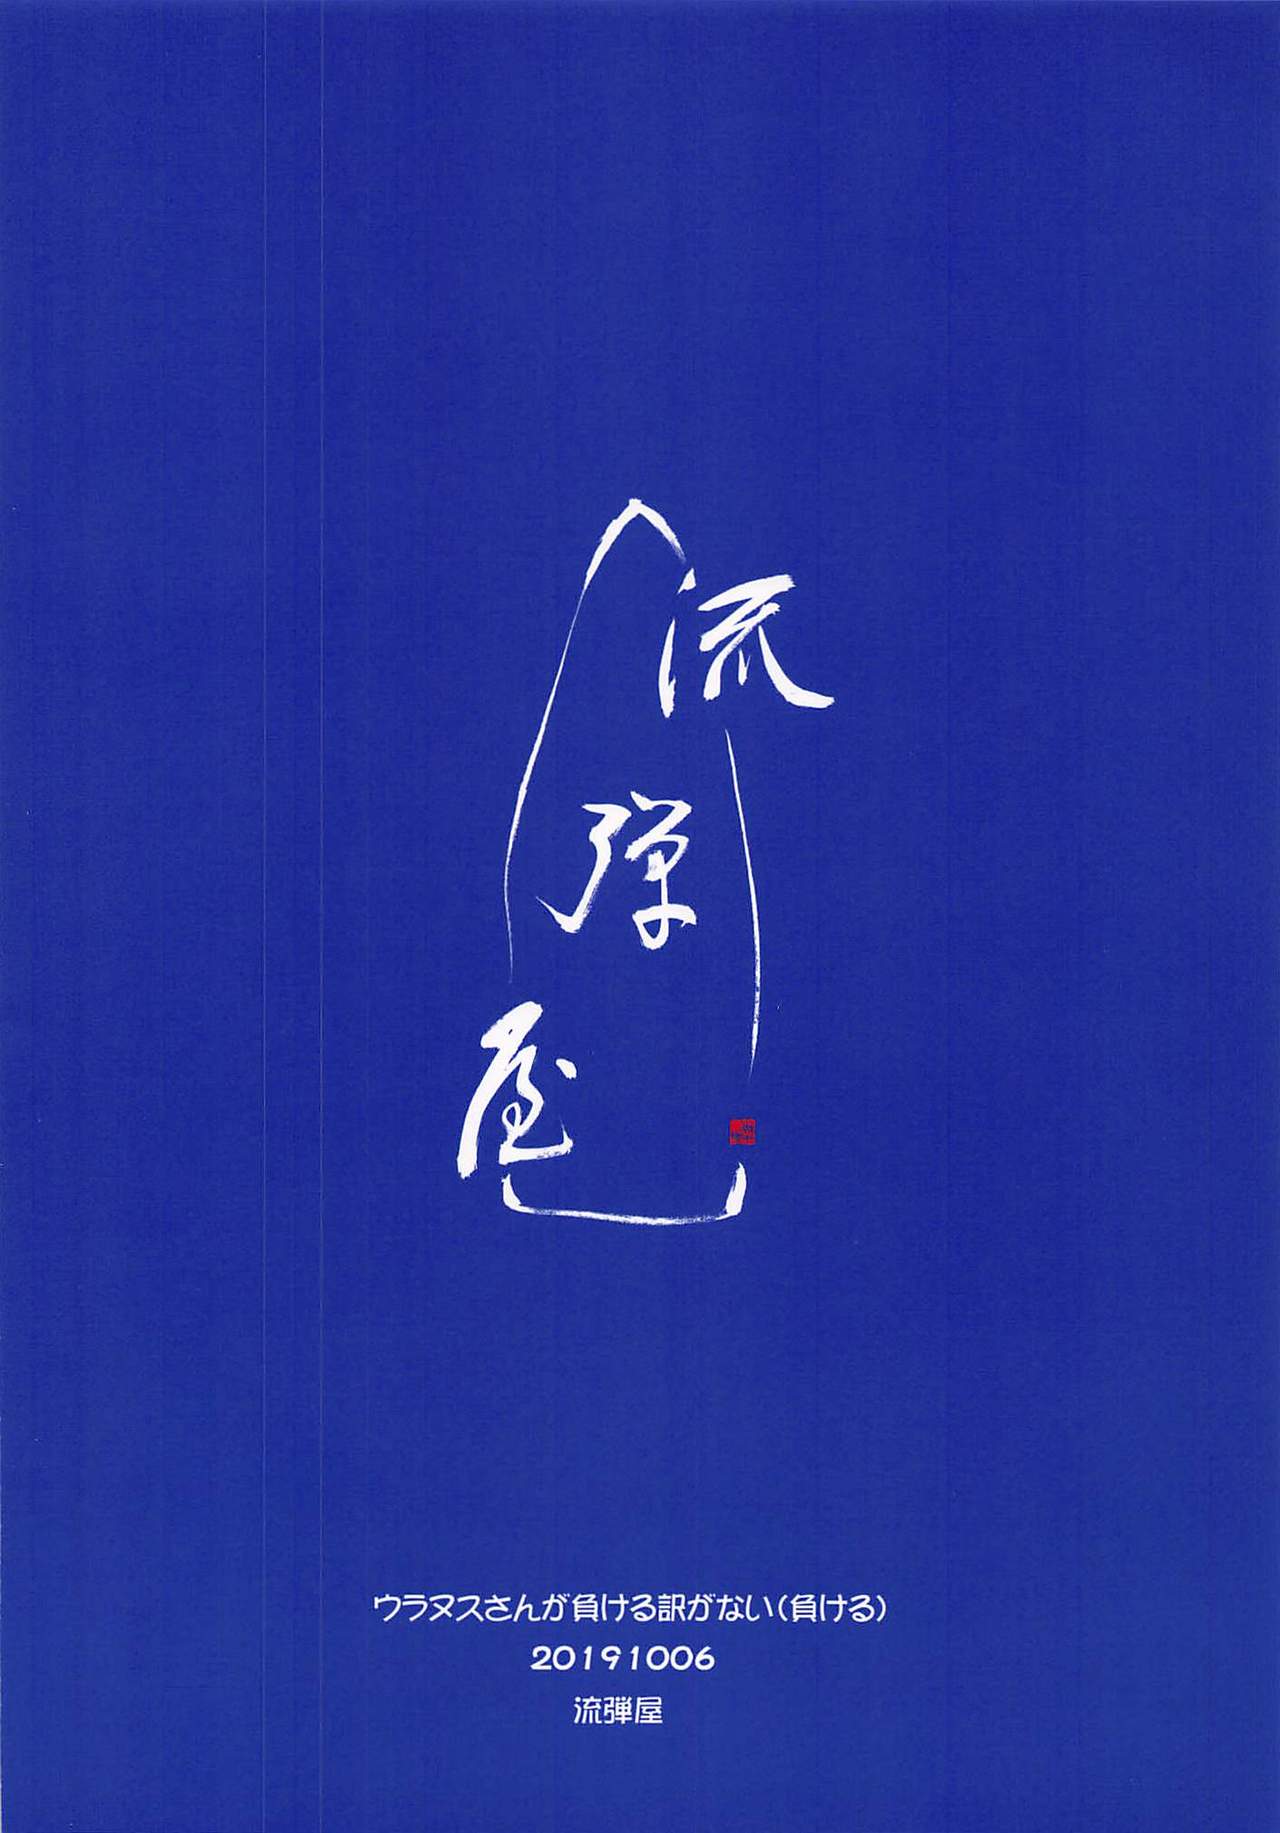 流弾屋
ウラヌスさんが負ける訳がない(負ける)
20191006
流弾屋